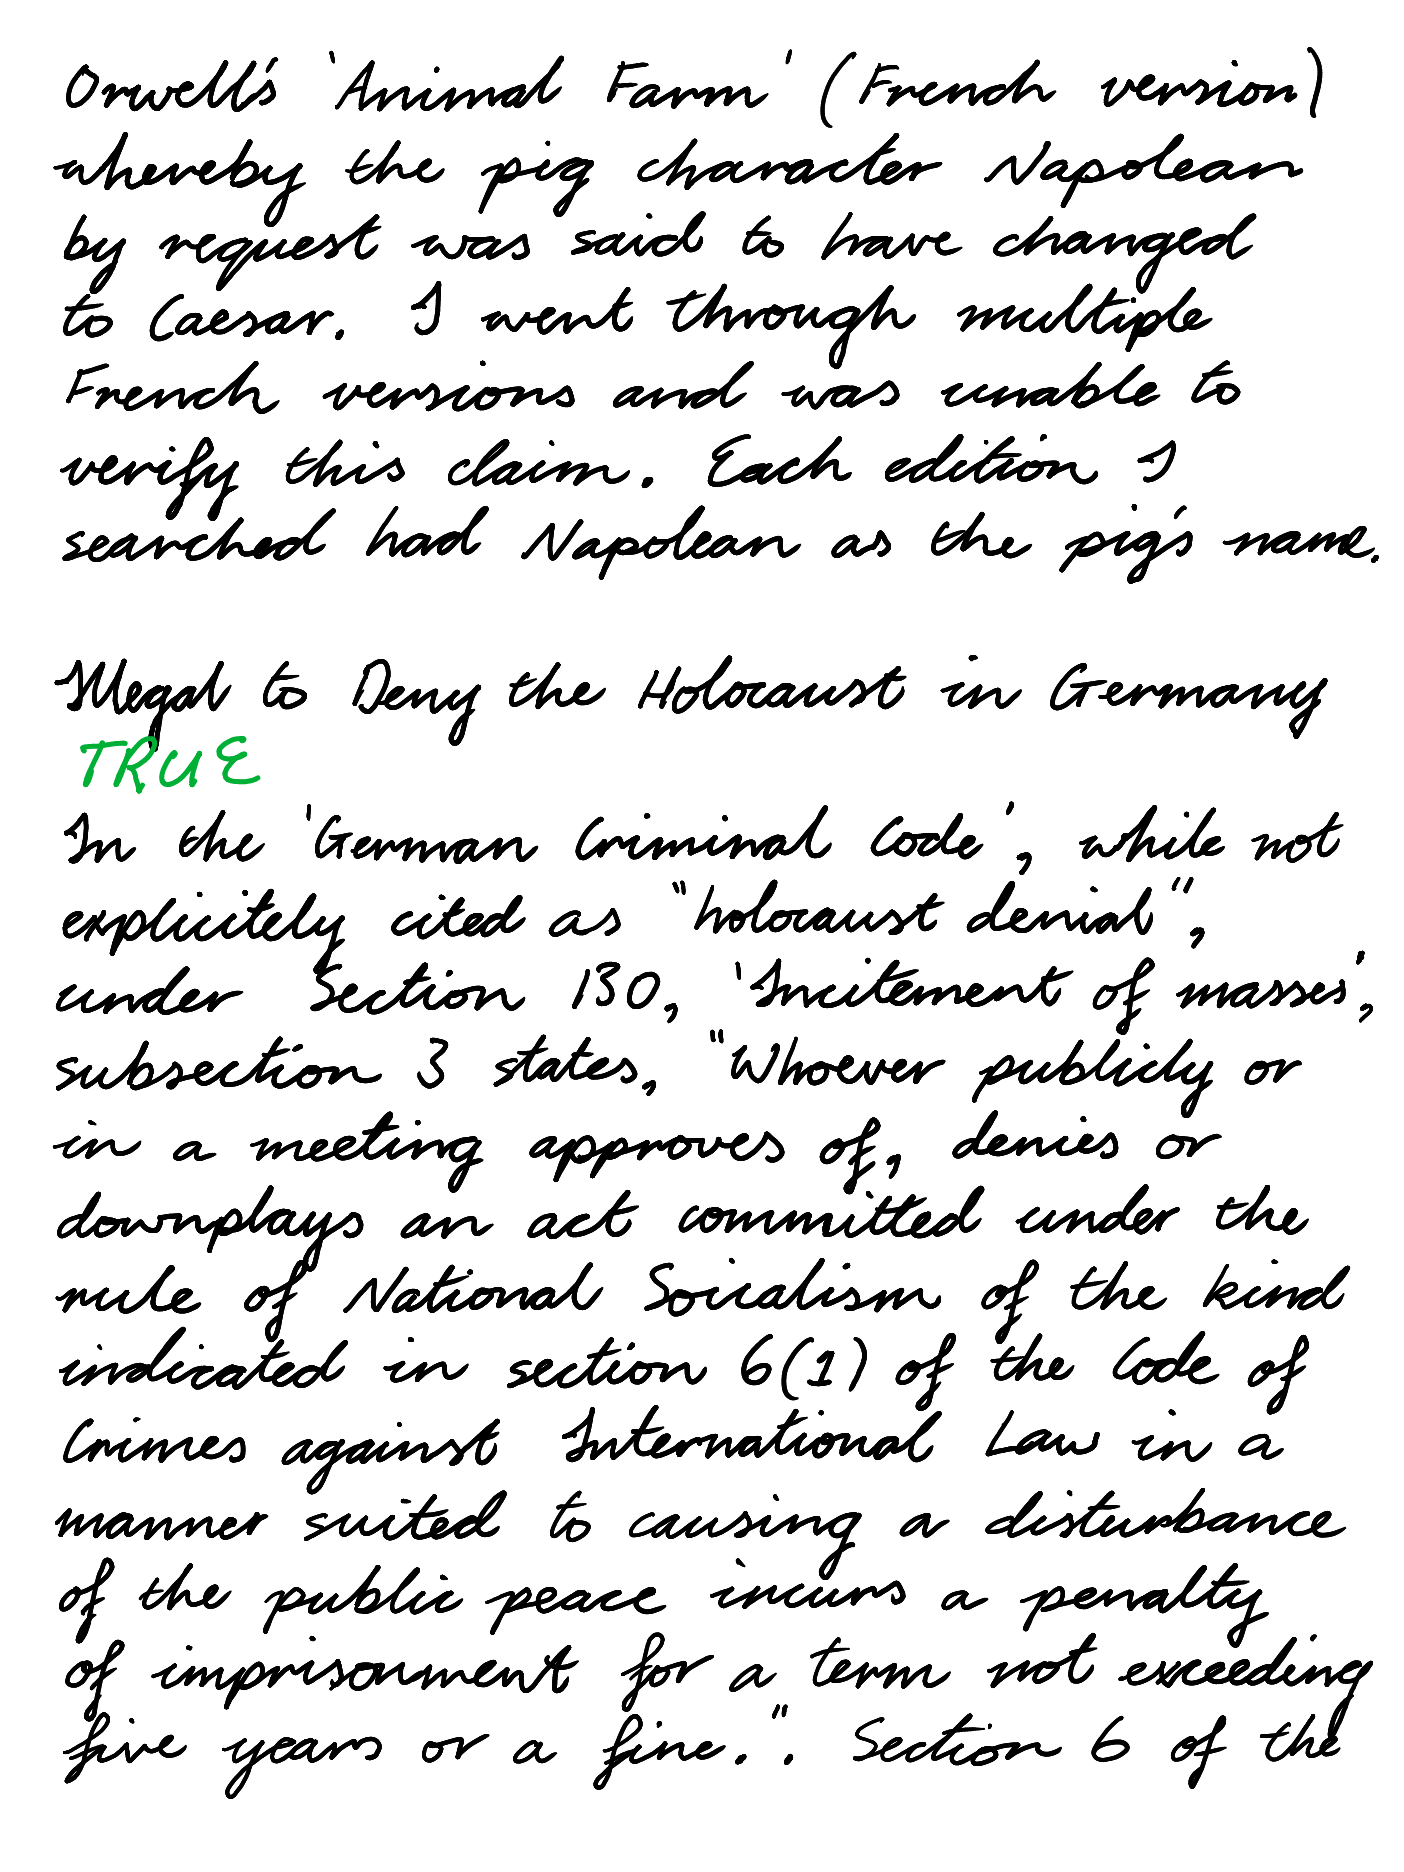 Orwell's 'Animal Farm' (French version)
whereby the pig character Napolean
by request was said to have changed
to Caesar. I went through multiple
French versions and was unable to
verify this claim. Each edition I
searched had Napolean as the pig's name.
Illegal to Deny the Holocaust in Germany
TRUE
In the 'German Criminal Code', while not
explicitely cited as "holocaust denial",
under Section 130, 'Incitement of masses',
subsection 3 states, "Whoever publicly or
in a meeting approves of, denies or
downplays an act committed under the
rule of National Soicalism of the kind
indicated in section 6(1) of the Code of
Crimes against International Law in a
manner suited to causing a disturbance
of the public peace incurs a penalty
of imprisonment for a term not exceeding
five years or a fine.". Section 6 of the